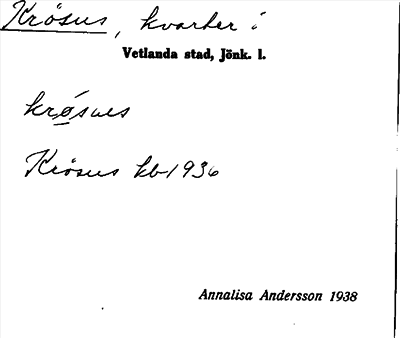 Krösus, kvarter i
Vetlanda stad, Jönk. l.
krøsues
Krösus kb 1936
Annalisa Andersson 1938